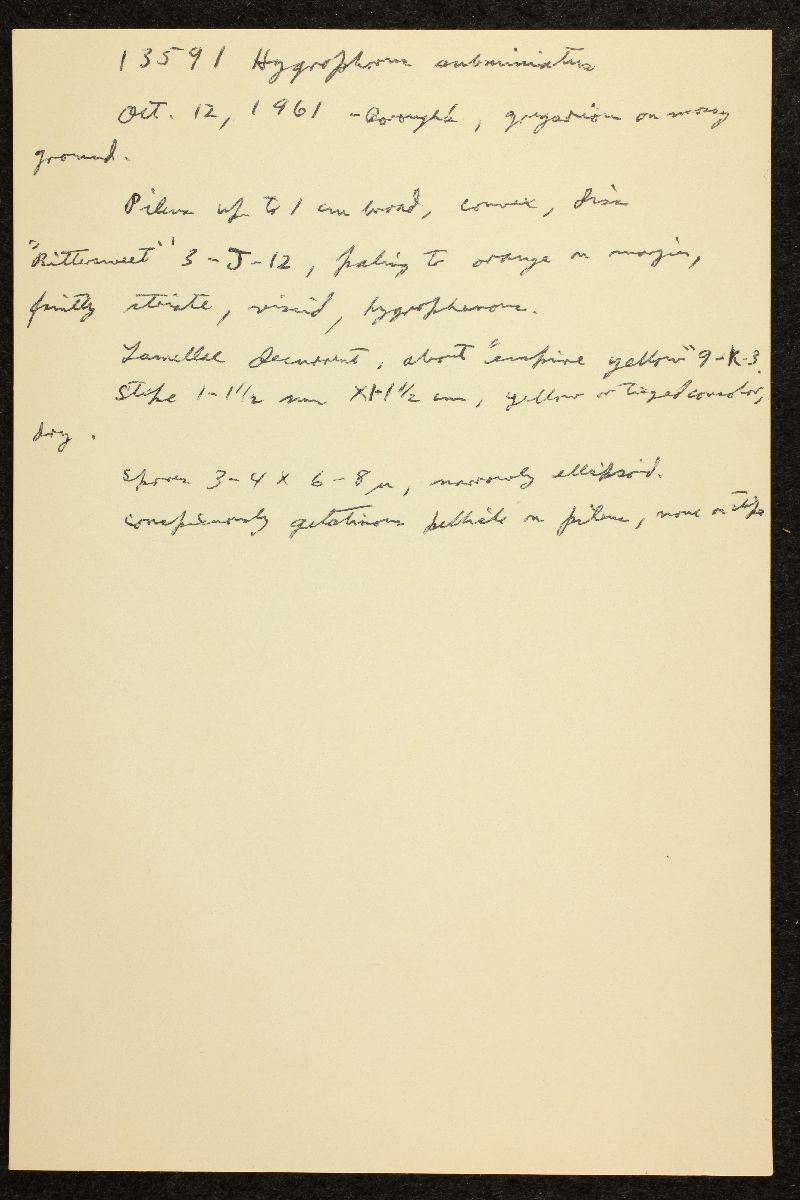 13591 Hygrophorus subminiatus
Oct. 12, 1961 - , gregarious on mossy
ground.
Pileus up to 1 cm broad, convex, disc
"Bittersweet" 3-J-12, paling to orange on margin,
faintly striate, viscid, hygrophanous.
Lamellae decurrent, about "empire yellow" 9-K-3.
Stipe 1-1 1/2 mm X 1-1 1/2 cm, yellow or tinged concolor,
dry.
Spores 3-4 X 6-8 µ, narrowly ellipsoid.
conspicuously gelatinous pellicle on pileus, none on stipe